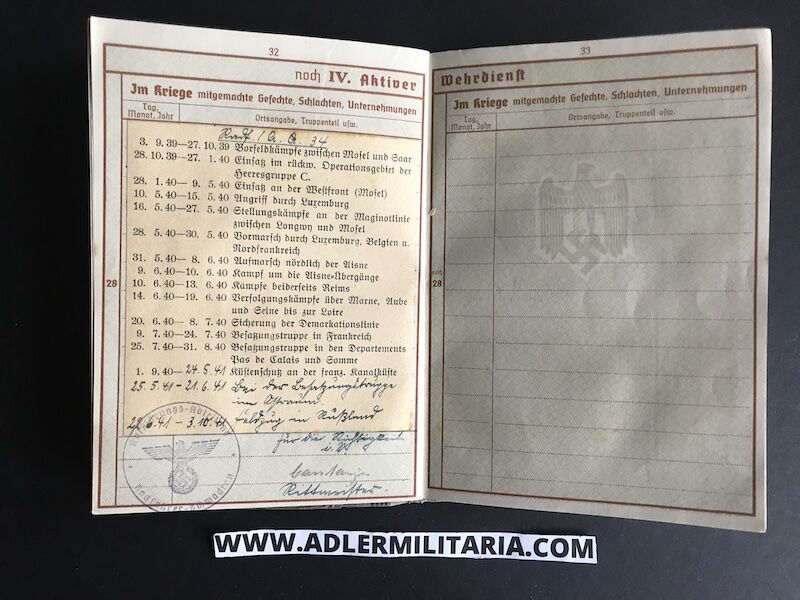 32
noch IV. Aktiver
Im Kriege mitgemachte Gefechte, Schlachten, Unternehmungen
Tag, Monat, Jahr
Ortsangabe, Truppenteil usw.
Radf. 34
3. 9.39—27.10.39 Vorfeldkämpfe zwischen Mosel und Saar
28.10.39—27. 1.40 Einsatz im rückw. Operationsgebiet der
Heeresgruppe C.
28. 1.40— 9. 5.40 Einsatz an der Westfront (Mosel)
10. 5.40—15. 5.40 Angriff durch Luxemburg
16. 5.40—27. 5.40 Stellungskämpfe an der Maginotlinie
zwischen Longwy und Mosel
28. 5.40—30. 5.40 Vormarsch durch Luxemburg, Belgien u.
Nordfrankreich
31. 5.40— 8. 6.40 Aufmarsch nördlich der Aisne
9. 6.40—10. 6.40 Kampf um die Aisne-Übergänge
10. 6.40—13. 6.40 Kämpfe beiderseits Reims
14. 6.40—19. 6.40 Verfolgungskämpfe über Marne, Aube
und Seine bis zur Loire
20. 6.40— 8. 7.40 Sicherung der Demarkationslinie
9. 7.40—24. 7.40 Besatzungstruppe in Frankreich
25. 7.40—31. 8.40 Besatzungstruppe in den Departements
Pas de Calais und Somme
1. 9.40—24.5.41 Küstenschutz an der franz. Kanalküste
25.5.41-21.6.41 Bei der Besatzungstruppe
im Ostraum.
22.6.41 - 3.10.41 Feldzug in Rußland
28
für die Richtigkeit
i.V.
Rittmeister
33
Wehrdienst
Im Kriege mitgemachte Gefechte, Schlachten, Unternehmungen
Tag, Monat, Jahr
Ortsangabe, Truppenteil usw.
noch
28
WWW.ADLERMILITARIA.COM